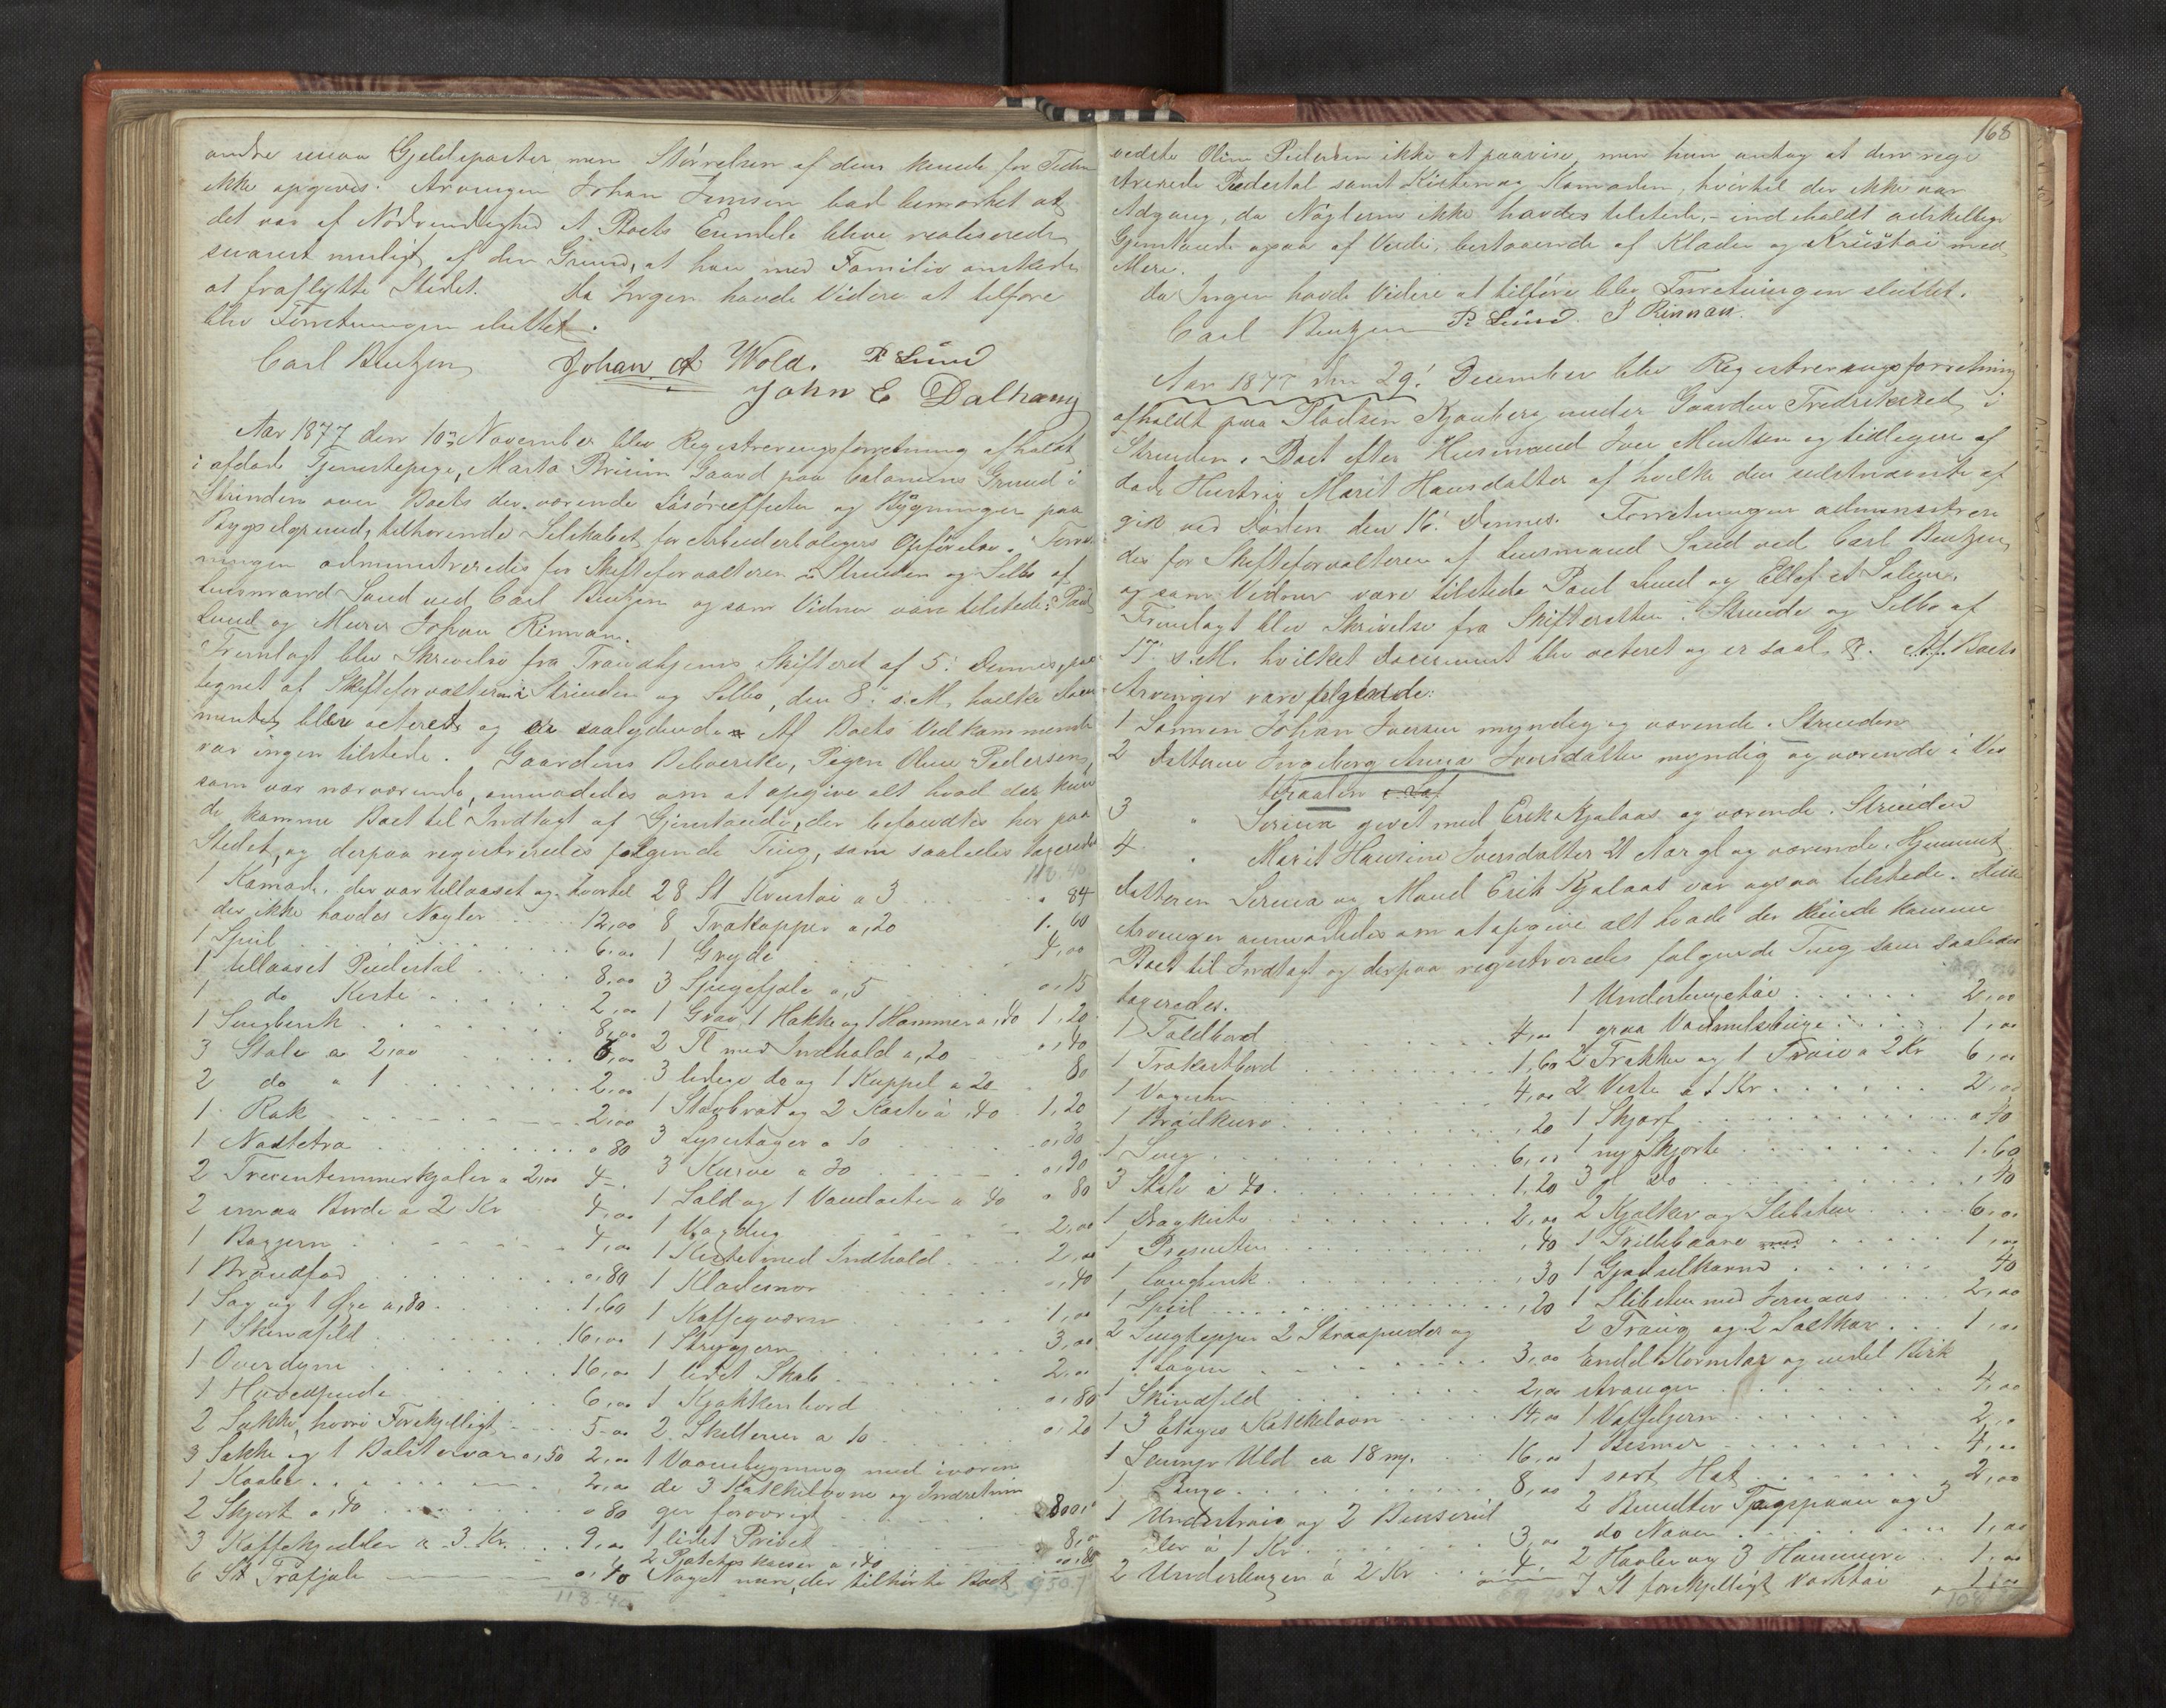 andre smaa Gjeldsposter, men Størrelsen af dem kunde for Tiden
ikke opgives. Arvingen Johan Jensen bad bemærket at
det var af Nødvendighed at Boets Eiendele bleve realiserede
snarest muligt, af den Grund, at han med Familie ønskede
at fraflytte Stedet. Da Ingen havde Videre at tilføre
blev Forretningen sluttet.
Carl Bentzen Johan A Wold. P Lund
John E Dalhaug
Aar 1877 den 10de November blev Registreringsforretning afholdt
i afdøde Tjenestepige, Marta Gaard paa Grund i
Strinden over Boets der værende Løsøreeffecter og Bygninger paa
Bygselgrund, tilhørende Selskabet for Arbeiderboligers Opførelse. Forret
ningen administreredes for Skifteforvalteren i Strinden og Selbo af
Lensmand Lund ved Carl Bentzen og som Vidner vare tilstede: Paul
Lund og Murer Johan Rinnan.
Fremlagt blev Skrivelse fra Trondhjems Skifteret af 5. Dennes, paa
tegnet af Skifteforvalteren i Strinden og Selbo, den 8. s. M, hvilke Docu
menter blev acteret og er saalydende. Af Boets Vedkommende
var ingen tilstede. Gaardens Beboerske, Pigen Oline Pedersen,
som var nærværende, anmodedes om at opgive alt hvad der kun
de komme Boet til Indtægt af Gjenstande, der befandtes her paa
Stedet, og derpaa registreredes følgende Ting, som saaledes taxeredes
118.40
1 Komode, der var tillaaset og hvortil
der ikke havdes Nøgler 12,00
1 Speil 6,00
1 tillaaset Piedestal 8,00
1 do Kiste 2,00
1 Sengbenk 8,00
3 Stole a 2,00 6,00
2 do a 1 2,00
1 Rok 2,00
1 0 80
2 a 2,00 4
2 smaa Borde a 2 Kr 4,00
1 4,00
1 Brandfad 0,80
1 Sag og 1 Øxe a ,80 1,60
1 Skindfeld 16,00
1 Overdyne 16,00
1 Hovedpude 6,00
2 Sække, hvori Forskjelligt 5,00
3 Sække og 1 Bolstervar a ,50 2,00
1 Kaabe 2,00
2 Skjørt a ,40 0 80
3 Kaffekjedler a 3 Kr. 9,00
6 St Træfjæle 0,40
118.40
28 St Krustøi a 3 84
8 Trækopper a ,20 1.60
1 Gryde 4,00
3 a ,5 0,15
1 Grav, 1 Hakke og 1 Hammer a ,40 1,20
2 Fl med Indhold a ,20 0,40
3 ledige do og 1 Kuppel a 20 80
1 og 2 Koste a ,40 1,20
3 Lysestager a 10 0,30
3 Kurve a 30 0,90
1 Sold og 1 a 40 80
1 Voxdug 2,00
1 Kiste med Indhold 2,00
1 Klædesnor 0,40
1 Kaffeqværn 1,00
1 Strygjern 3,00
1 lidet Skab 2,00
1 Kjøkkenbord 0,80
2 Skilderier a 10 0,20
1 Vaaenbygning med iværen
de 3 Kakkelovne og Indretnin
ger forøvrigt 800,0
1 lidet Privet 8,0
2 a ,40 80
Noget mere, der tilhørte Boet
168
vidste Oline Pedersen ikke at paavise, men hun antog at den regi
strerede Piedestal samt Kisten og Komoden, hvortil der ikke var
Adgang, da Nøglerne ikke havdes tilstede, indeholdt adskillige
Gjenstande ogsaa af Værdi, bestaaende af Klæder og Krustøi med
Mere.
Da Ingen havde Videre at tilføre blev Forretningen sluttet.
Carl Bentzen P. Lund. J Rinnan.
Aar 1877 den 29. December blev Registreringsforretning
afholdt paa Pladsen Kjønberg under Gaarden i
Strinden i Boet efter Husmand Iver Mentsen og tidligere af
døde Hustru Marit Hansdatter af hvilke den sidstnævnte af
gik ved Døden den 16. Dennes. Forretningen administrere
des for Skifteforvalteren af Lensmand Lund ved Carl Bentzen
og som Vidner vare tilstede Paul Lund og Ellef
Fremlagt blev Skrivelse fra Skifteretten i Strinde og Selbo af
17 s. M. hvilket Document blev acteret og er saal. Af Boets
Arvinger vare følgende:
1 Sønnen Johan Iversen myndig og værende i Strinden
2 Datteren Ingeborg Anna Iversdatter myndig og værende i Ves
teraalen
3 " Serina givet med Erik Kjølaas og værende i Strinden
4 " Marit Hansine Iversdatter 21 Aar gl og værende i Hjemmet
Datteren Serina og Mand Erik Kjølaas var ogsaa tilstede. Disse
Arvinger anmodedes om at opgive alt hvad der kunde komme
Boet til Indtægt og derpaa registreredes følgende Ting som saaledes
taxeredes.
1 Foldbord 4,00
1 Trækistbord 1,60
1 Vogeskur 4,00
1 Brødkurv ,20
1 Seng 6,00
3 Stole a 40 1.20
1 Dragkiste 2,00
1 ,40
1 Langbenk ,30
1 Speil ,20
2 Sengtepper 2 Straapuder og
1 Lagen 3,00
1 Skindfeld 2,00
1 3 Etages Kakkelovn 14,00
1 Uld ca 18 16,00
1 8,00
1 Undertrøie og 2
a 1 Kr 3,00
2 Underbuxer a 2 Kr 4.
1 Underbuxetøi 2,00
1 graa Vadmelsbuxe 1,00
2 Frakker og 1 Trøie a 2 Kr 6,00
2 Veste a 1 Kr 2,00
1 Skjørt 40
1 ny Skjorte 1.60
3 gl do ,40
2 Kjelker og Slibesten 6,00
1 Trillebaare 1,00
1 Gjødselkærre 40
1 Slibesten med Jernaas 2,00
2 Traug og 2 Saltkar 1,00
Endel Korntør og endel Birk
stranger 4,00
1 Vaffeljern 2,00
1 Bismer 4,00
1 sort Hat 2,00
2 Bundter Tagspaan og 3
do Naver 1,00
2 Høvler og 3 Hammere 1,00
7 St forskjelligt Værktøi 1,00